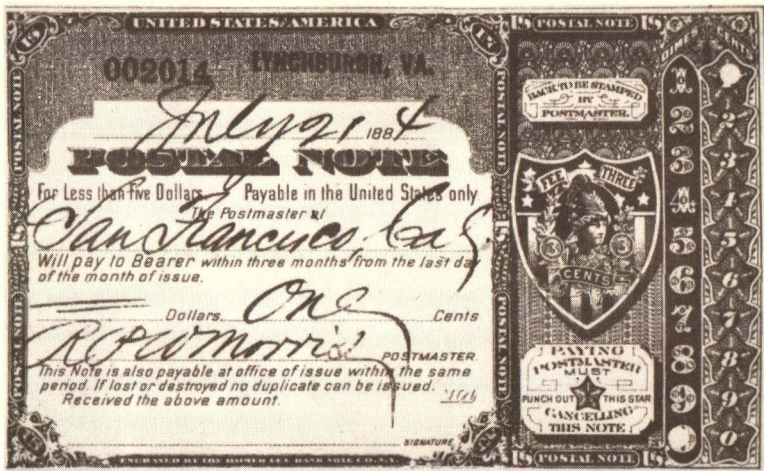 UNITED STATES OF AMERICA
002014 LYNCHBURGH, VA.
July 21 1884
POSTAL NOTE
For Less than Five Dollars Payable in the United States only
The Postmaster at
San Francisco, Cal
Will pay to Bearer within three months from the last day
of the month of issue.
Dollars, One Cents
POSTMASTER.
This Note is also payable at office of issue within the same
period. If lost or destroyed no duplicate can be issued.
Received the above amount.
SIGNATURE
ENGRAVED BY THE HOMER LEE BANK NOTE CO. N.Y.
POSTAL NOTE
POSTAL NOTE
POSTAL NOTE
POSTAL NOTE
POSTAL NOTE
BACK TO BE STAMPED
BY
POSTMASTER.
FEE THREE
3 3
CENTS
PAYING
POSTMASTER
MUST
PUNCH OUT THIS STAR
CANCELLING
THIS NOTE
POSTAL NOTE
DIMES CENTS
1
2 2
3 3
4 4
5 5
6 6
7 7
8 8
9 9
0